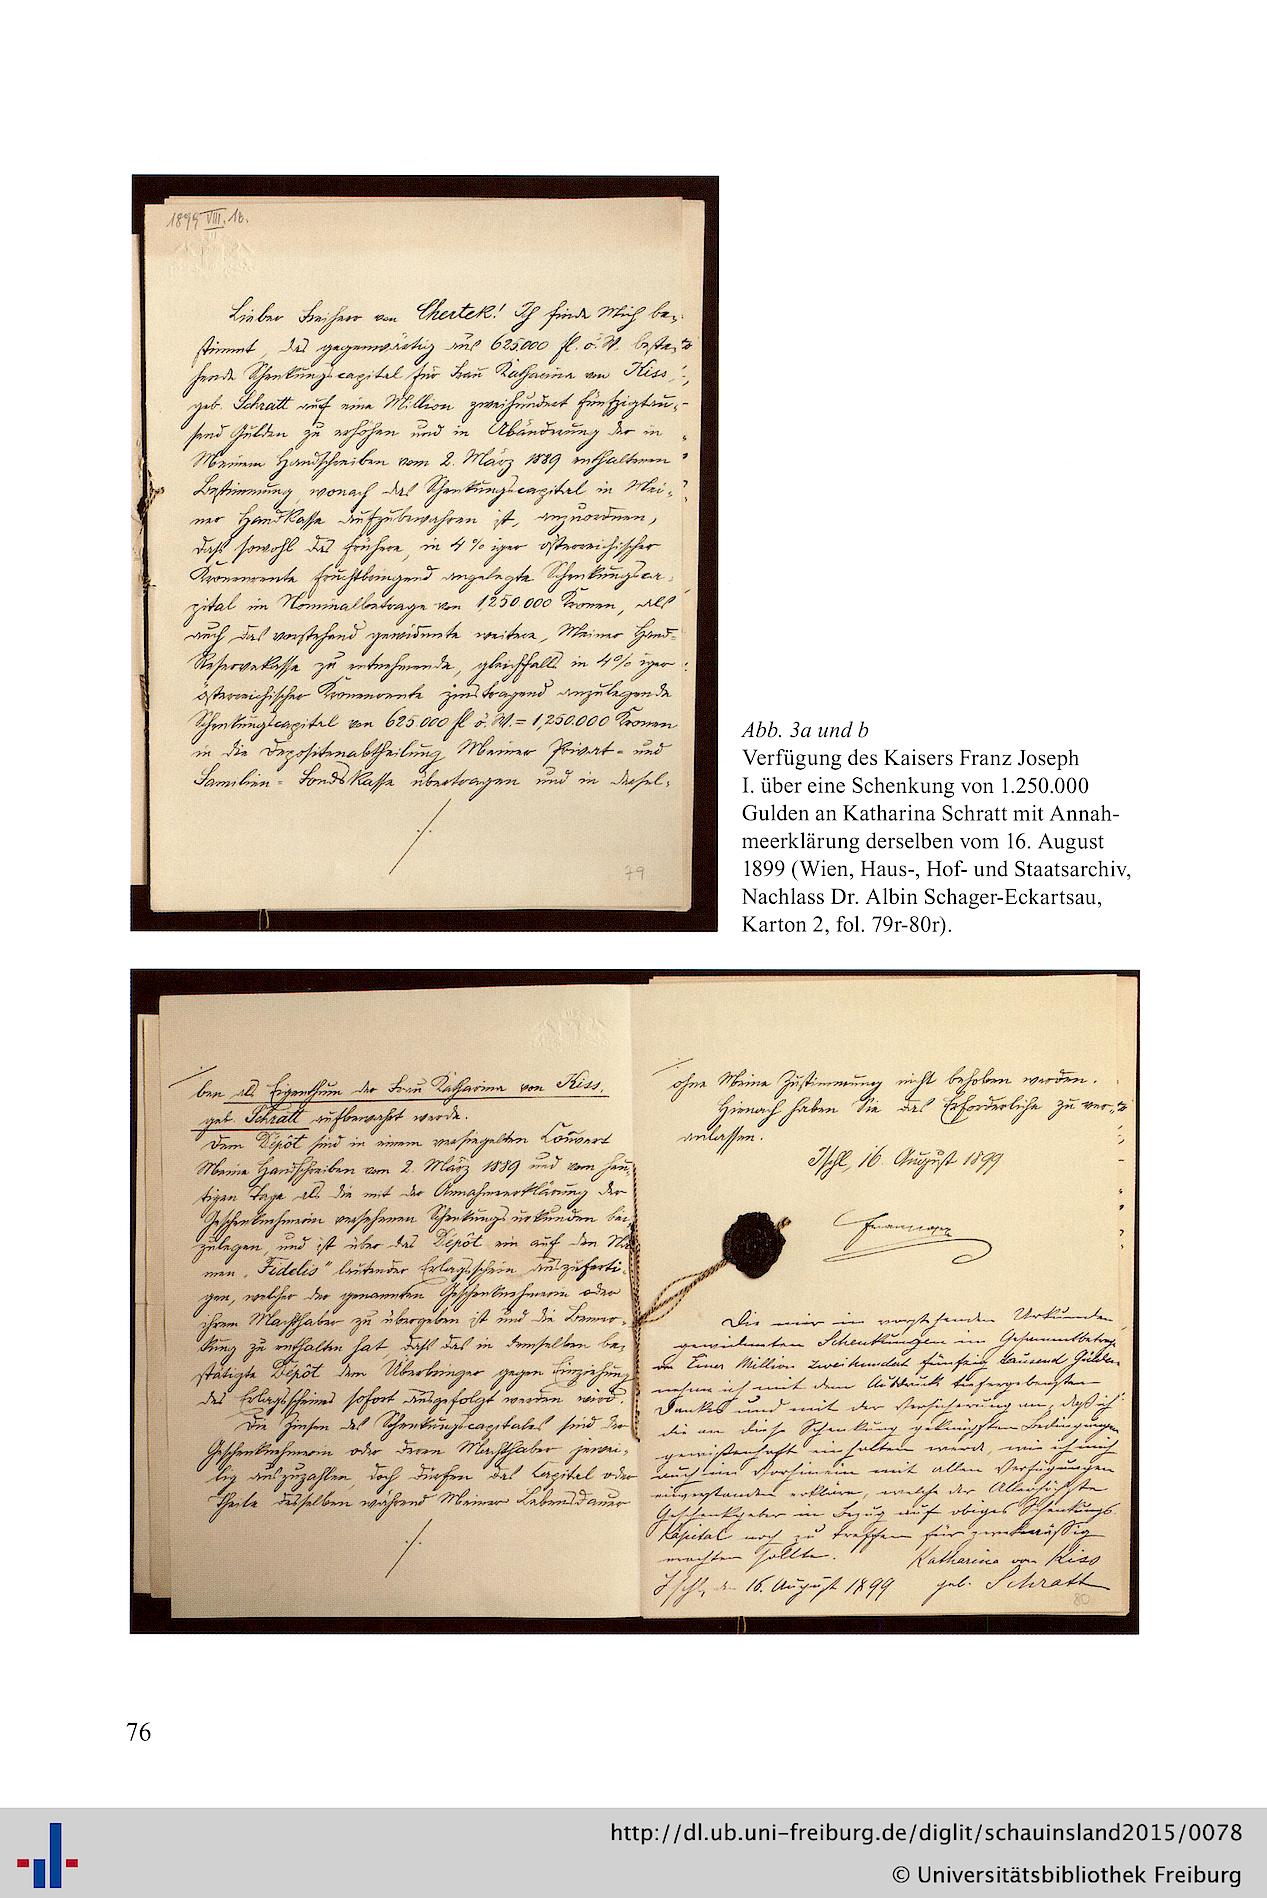 1899 VIII. 16.
Lieber Freiherr von Chertek! Ich finde Mich be-
stimmt, das gegenwärtig aus 625.000 fl. ö. W. beste-
hende Schenkungscapital für Frau Katharina von Kiss,
geb. Schratt auf eine Million zweihundert fünfzigtau-
send Gulden zu erhöhen und in Abänderung der in
Meinem Handschreiben vom 2. März 1889 enthaltenen
Bestimmung, wonach das Schenkungscapital in Mei-
ner Handkasse aufzubewahren ist, anzuordnen,
daß sowohl das frühere, in 4% iger österreichischer
Kronenrente fruchtbringend angelegte Schenkungsca-
pital im Nominalbetrage von 1,250.000 Kronen, als
auch das vorstehend gewidmete weitere, Meiner Hand-
Reservekasse zu entnehmende, gleichfalls in 4% iger
österreichischer Kronenrente zinstragend anzulegende
Schenkungscapital von 625.000 fl ö. W. = 1,250.000 Kronen
in die Depositenabtheilung Meiner Privat- und
Familien- Fondskasse übertragen und in dersel-
./.
79
Abb. 3a und b
Verfügung des Kaisers Franz Joseph
I. über eine Schenkung von 1.250.000
Gulden an Katharina Schratt mit Annah-
meerklärung derselben vom 16. August
1899 (Wien, Haus-, Hof- und Staatsarchiv,
Nachlass Dr. Albin Schager-Eckartsau,
Karton 2, fol. 79r-80r).
ben als Eigenthum der Frau Katharina von Kiss,
geb. Schratt aufbewahrt werde.
Dem Dépôt sind in einem versiegelten Couvert
Meine Handschreiben vom 2. März 1889 und vom heu-
tigen Tage als die mit der Annahmeerklärung der
Geschenknehmerin versehenen Schenkungsurkunden bei-
zulegen, und ist über das Dépôt ein auf den Na-
men „Fidelis" lautender Erlagsschein auszuferti-
gen, welcher der genannten Geschenknehmerin oder
ihrem Machthaber zu übergeben ist und die Bemer-
kung zu enthalten hat, daß das in demselben be-
stätigte Dépôt dem Überbringer gegen Einziehung
des Erlagsscheines sofort ausgefolgt werden wird.
Die Zinsen des Schenkungscapitales sind der
Geschenknehmerin oder deren Machthaber jewei-
lig auszuzahlen, doch dürfen das Capital oder
Theile desselben während Meiner Lebensdauer
./.
ohne Meine Zustimmung nicht behoben werden.
Hienach haben Sie das Erforderliche zu ver-
anlassen.
Ischl, 16. August 1899
Die mir in vorstehenden Urkunden
gewidmeten Schenkungen im Gesammtbetrage
von Einer Million zweihundert fünfzig tausend Gulden
nehme ich mit dem Ausdruck tiefergebensten
Dankes und mit der Versicherung an, daß ich
die an diese Schenkung geknüpften Bedingungen
gewißenhaft einhalten werde, wie ich mich
auch im Vorhinein mit allen Verfügungen
einverstanden erkläre, welche der Allerhöchste
Geschenkgeber in Bezug auf obiges Schenkungs-
kapital noch zu treffen für zweckmässig
erachten sollte.
Katharina von Kiss
Ischl, den 16. August 1899 geb. Schratt
80
76
http://dl.ub.uni-freiburg.de/diglit/schauinsland2015/0078
© Universitätsbibliothek Freiburg